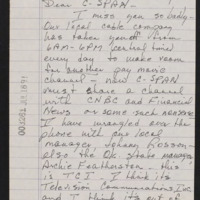 Dear C-SPAN -
I miss you so badly -
Our local cable company
has taken you off from
6AM - 6PM central time
every day to make room
for another pay movie
channel - now C-SPAN
must share a channel
with CNBC and Financial
News or some such nonsense
I have wrangled over the
phone with my local
manager, Johnny
also the Ok. State manager
Archie Featherston, this
is "TCI" I think its
Television Communications Inc
and I think its out of